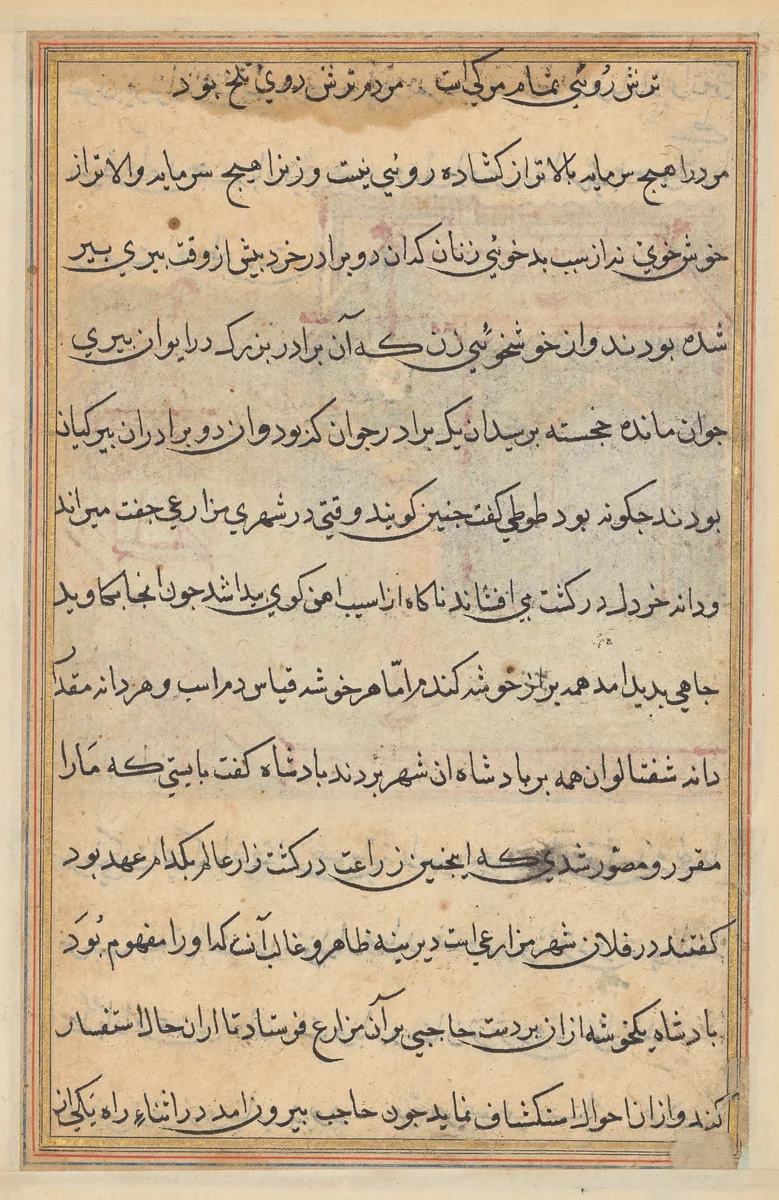 ترش روئی تمام مرکی است مردم ترش روی تلخ بود
مرد را هیچ سرمایه بالاتر از کشاده روئی نیست و زنرا هیچ سرمایه والاتر از
خوش خوئی نه از سبب بدخوئی زنان کدان دو برادر خرد بیش از وقت بیری بیر
شده بودند و از خوشخوئی زن که آن برادر بزرک در ایوان بیری
جوان مانده خجسته برسید ان یک برادر جوان که بود و ان دو برادران بیر کیان
بودند جکونه بود طوطی کفت جنین کویند وقتی در شهری مزارعی جفت میراند
و دانه خردل در کشت می افشاند ناکاه از اسیب اهن کوی بیدا شد جون انجا بکاوید
جاهی بدید امد همه بر از خوشه کندم اما هر خوشه قیاس دم اسب و هر دانه مقدار
دانه شفتالو ان همه بر بادشاه ان شهر بردند بادشاه کفت بایستی که مارا
مقرر و مصور شدی که اینجنین زراعت در کشت زار عالم بکدام عهد بود
کفتند در فلان شهر مزارعی است دیرینه ظاهر و غالب آنست که او را مفهوم بود
بادشاه یکخوشه از ان بردست حاجبی بر آن مزارع فرستاد تا از ان حال استفسار
کند و از ان احوال استکشاف نماید جون حاجب بیرون امد در اثناء راه یکی از